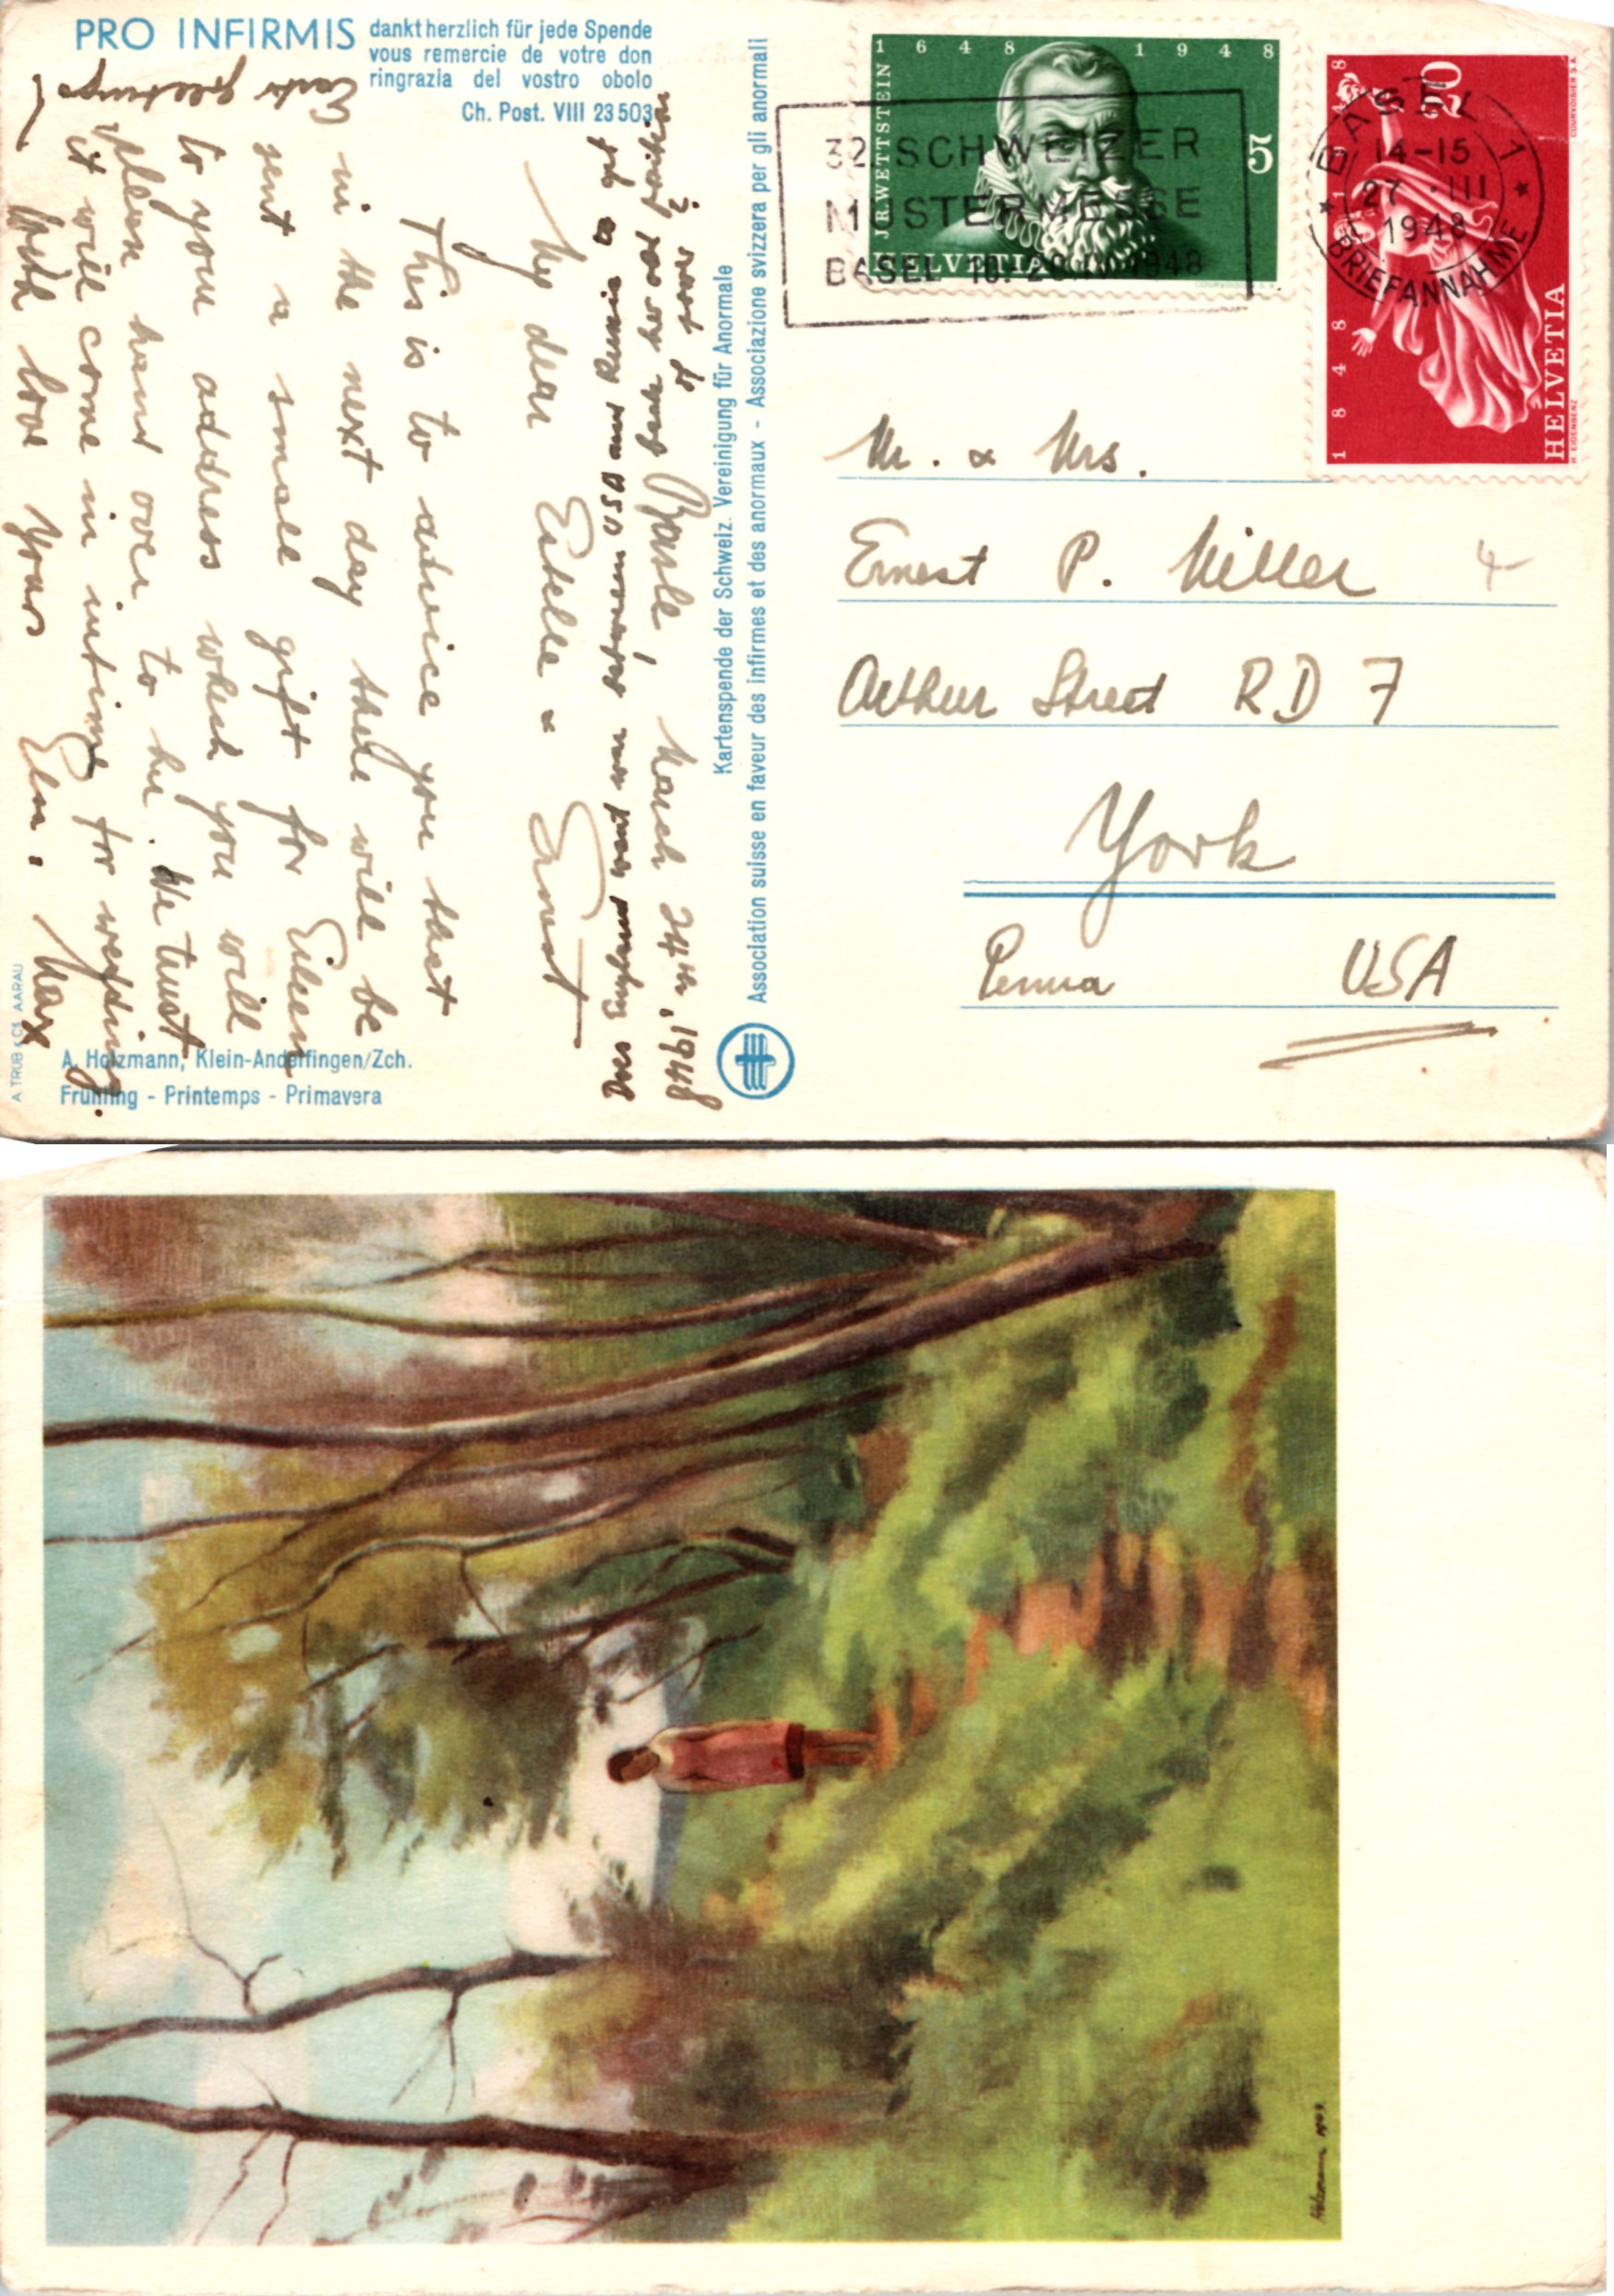 PRO INFIRMIS
dankt herzlich für jede Spende
vous remercie de votre don
ringrazia del vostro obolo
Ch. Post. VIII 23503
Basle, March 24th, 1948
My dear Estelle & Ernest
This is to advice you that
in the next day there will be
sent a small gift for Eileen
to your address which you will
please hand over to her. We trust
it will come in intime for wedding.
With love Yours Elsa. Max
Easter greetings!
Does England want war between USA and Russia to get
back her old position
of power?
A. Holzmann, Klein-Andelfingen/Zch.
Frühling - Printemps - Primavera
A. TRÜB & CIE AARAU
Kartenspende der Schweiz. Vereinigung für Anormale
Association suisse en faveur des infirmes et des anormaux - Associazione svizzera per gli anormali
1648 1948
J.R.WETTSTEIN
5
HELVETIA
COURVOISIER S.A.
32. SCHWEIZER
MUSTERMESSE
BASEL 10.-20. 1948
1848 1948
20
HELVETIA
H. EIDENBENZ
COURVOISIER S.A.
BASEL 1
14-15
27.III
1948
BRIEFANNAHME
Mr. & Mrs.
Ernest P. Miller
Arthur Street RD 7
York
Penna USA
Holzmann 1943